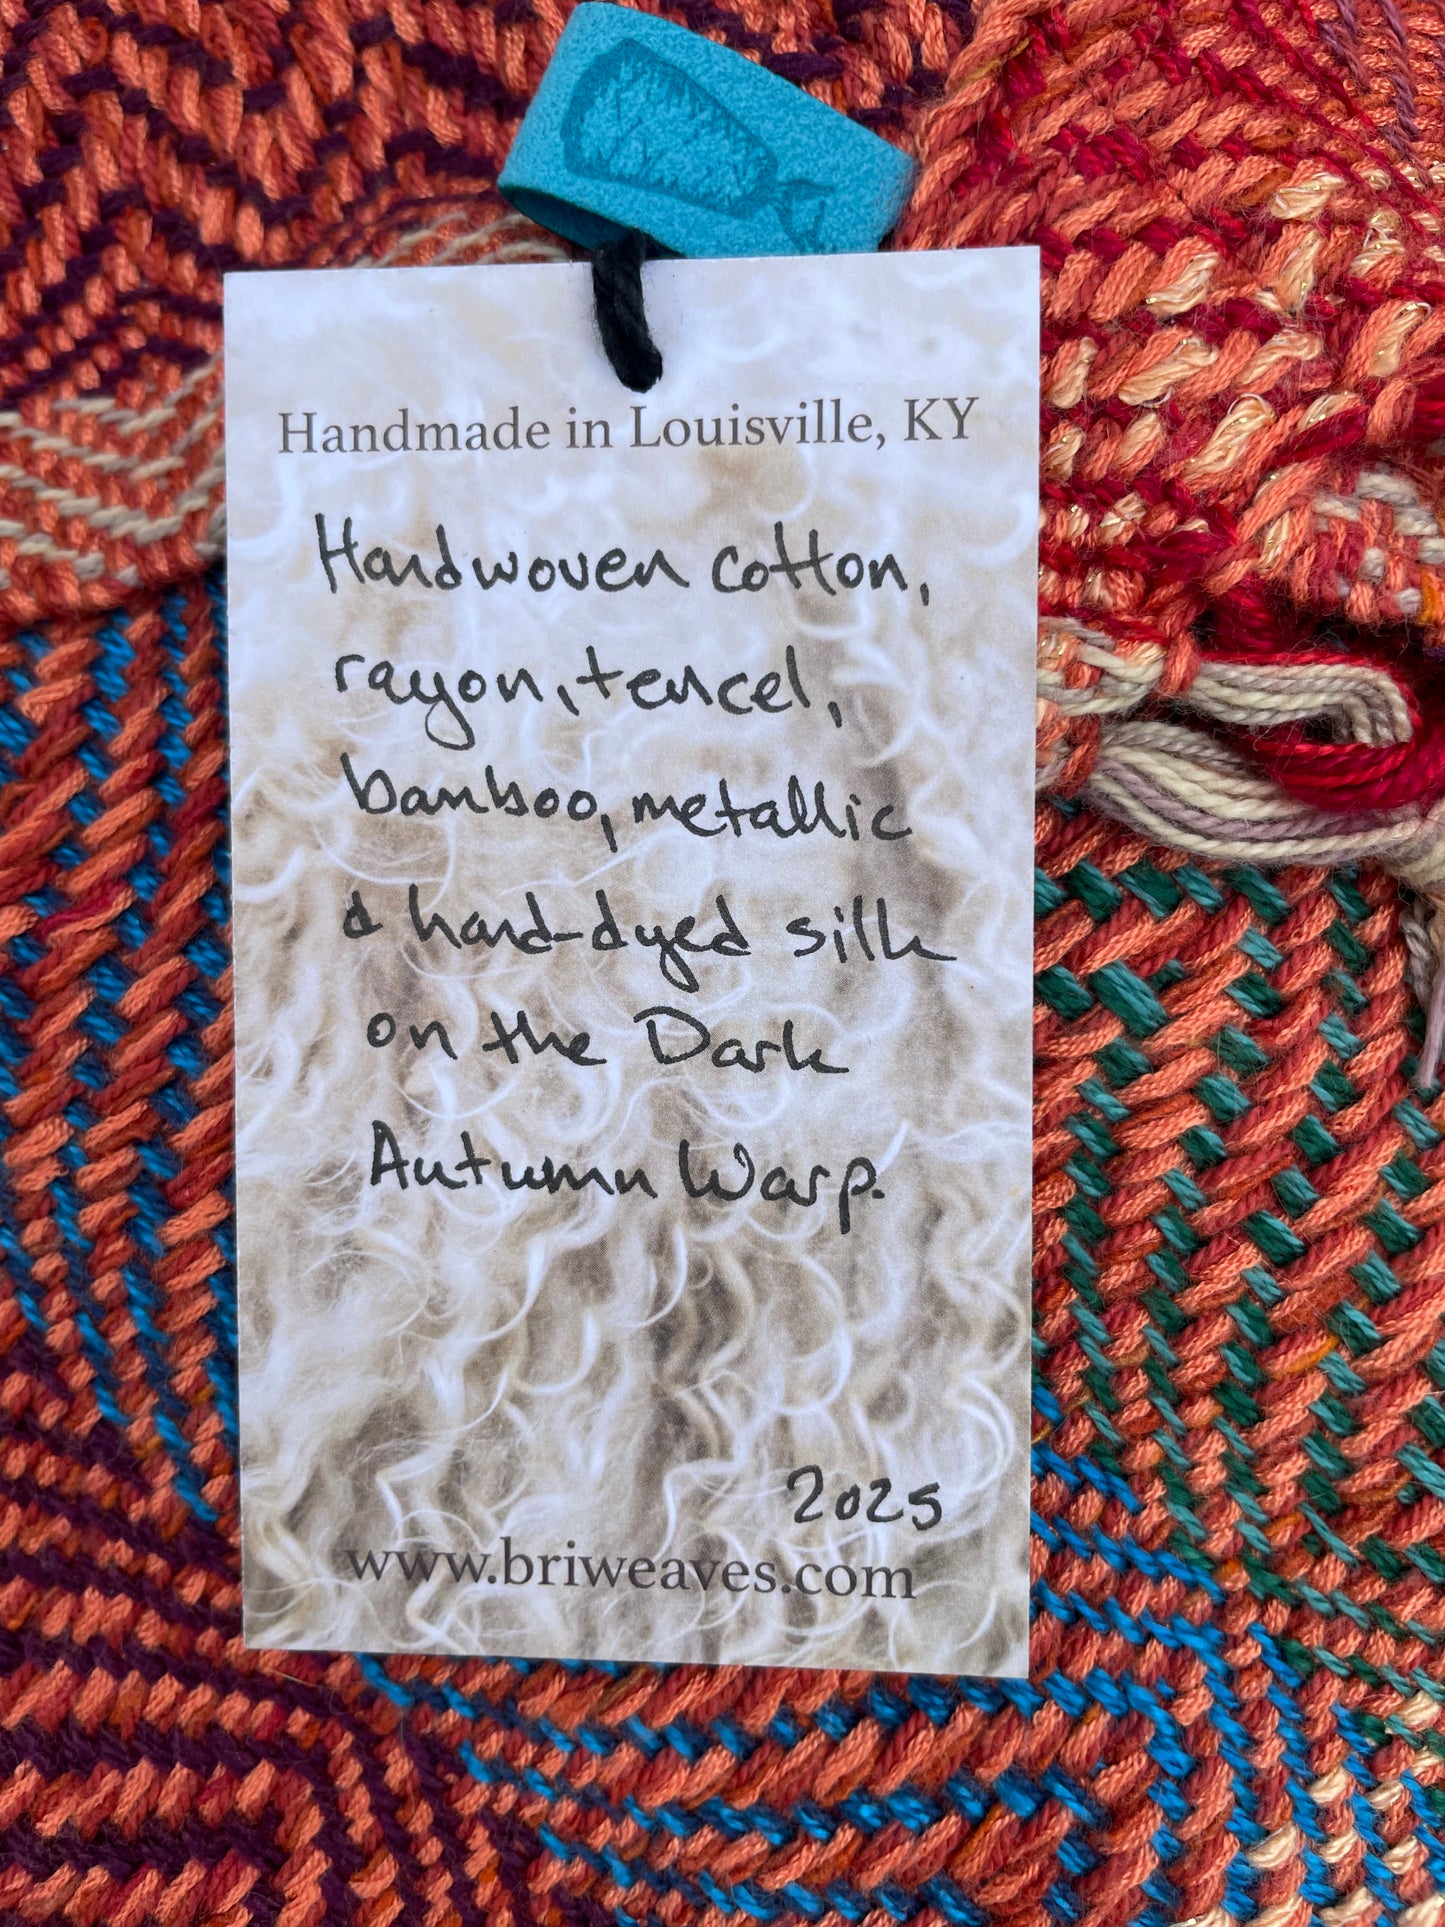 Handmade in Louisville, KY
Handwoven cotton,
rayon, tencel,
bamboo, metallic
& hand-dyed silk
on the Dark
Autumn Warp.
2025
www.briweaves.com